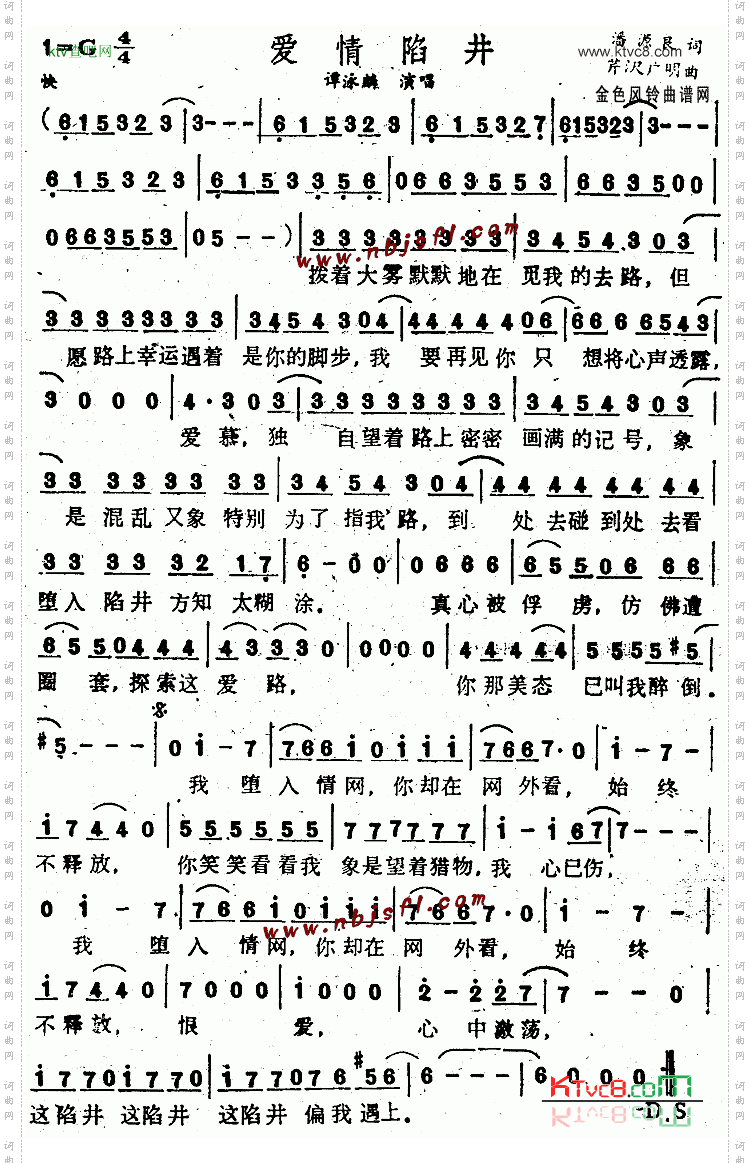 1=G 4/4
ktv查吧网
爱情陷井
www.ktvc8.com
潘源良 词
芹沢广明 曲
快
谭泳麟 演唱
金色风铃曲谱网
(615323 | 3--- | 615323 | 615327 | 615323 | 3---
615323 | 6153356 | 06635553 | 663500
06635553 | 05--) | 33333333 | 3454303
www.nbjsfl.com
拨着大雾默默地在 觅我的去路，但
33333333 | 3454304 | 44444406 | 6666543
愿路上幸运遇着 是你的脚步，我 要再见你只 想将心声透露，
3000 | 4·303 | 33333333 | 3454303
爱慕，独 自望着路上密密 画满的记号，象
33333333 | 3454304 | 44444444
是混乱又象特别 为了指我路，到 处去碰到处去看
33333217 | 6-00 | 0666 | 6550666
堕入陷井方知太糊涂。 真心被俘虏，仿佛遭
65504444 | 433330 | 0000 | 44444 | 5555#5
圈套，探索这爱路， 你那美态 已叫我醉倒。
#5--- | 0i-7 | 766i0iii | 7667·0 | i-7-
我堕入情网，你却在网外看，始终
i7440 | 555555 | 777777 | i-i67 | 7---
不释放， 你笑笑看着我 象是望着猎物，我 心已伤，
0i-7 | 766i0iii | 7667·0 | i-7-
www.nbjsfl.com
我堕入情网，你却在网外看，始终
i7440 | 7000 | 0i00 | 2-227 | 7--0
不释放， 恨 爱， 心中激荡，
i770i770 | i77076#56 | 6--- | 6000
KTvc8.com
这陷井 这陷井 这陷井 偏我遇上。
D.S